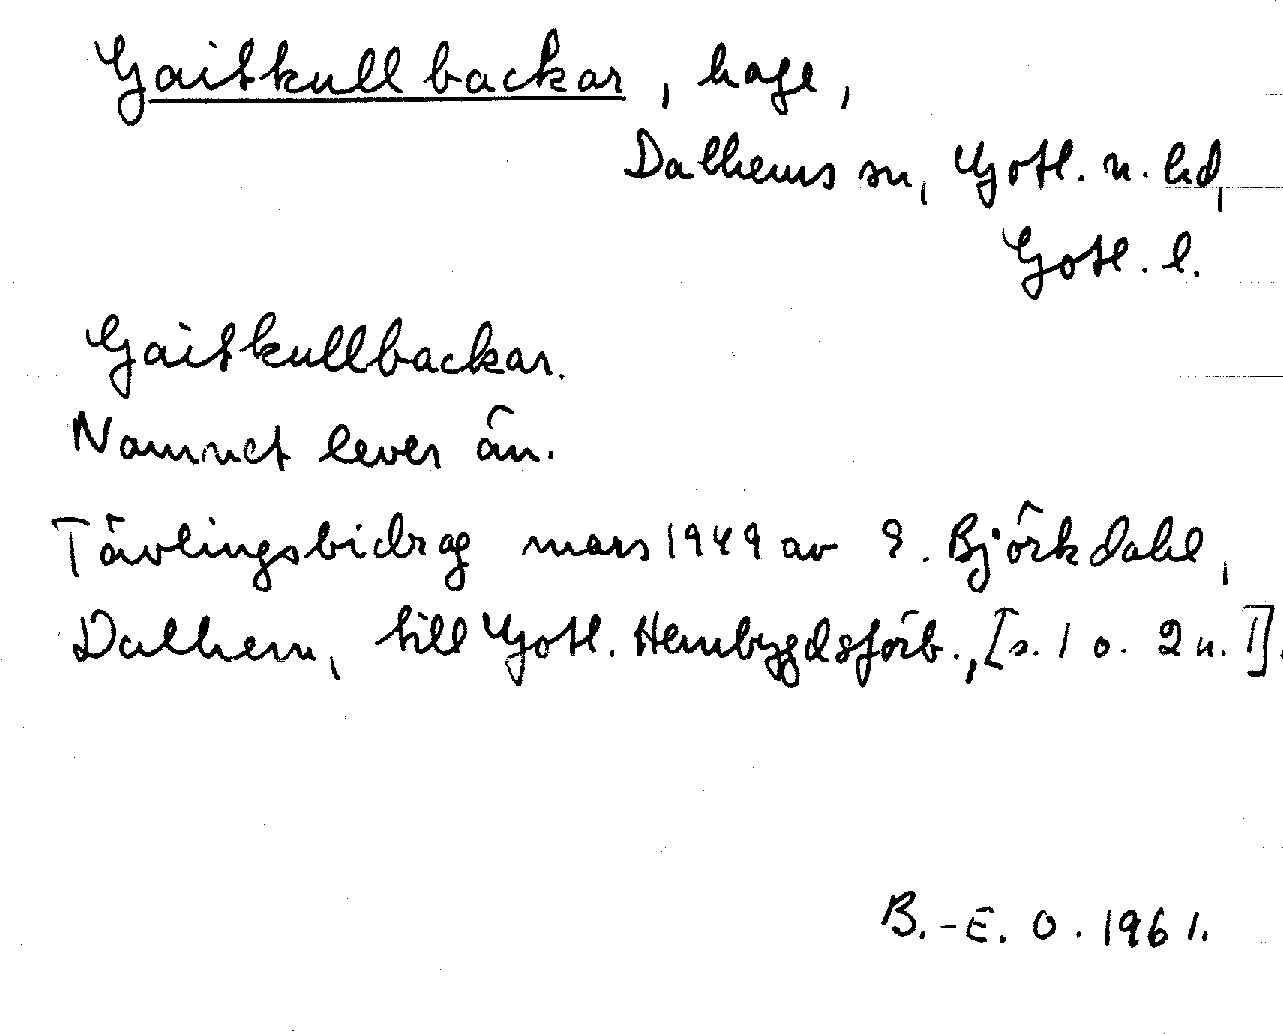 Gaitkullbackar, hage,
Dalhems sn, Gotl. n. hd,
Gotl. l.
Gaitkullbackar.
Namnet lever än.
Tävlingsbidrag mars 1949 av E. Björkdahl,
Dalhem, till Gotl. Hembygdsförb., [s. 1 o. 2 n. 1].
B.-E. O. 1961.